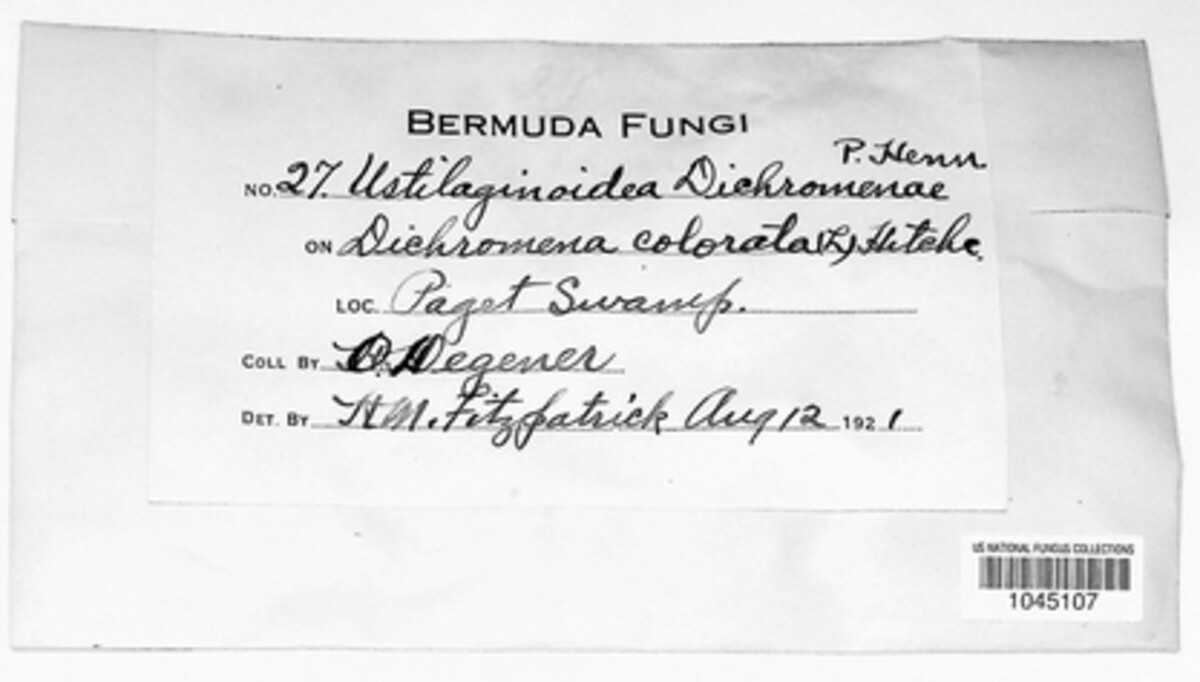 BERMUDA FUNGI
P. Henn
NO. 27. Ustilaginoidea Dichromenae
ON Dichromena colorata (L) Hitchc.
LOC. Paget Swamp.
COLL BY O. Degener
DET. BY H M. Fitzpatrick Aug 12 1921
US NATIONAL FUNGUS COLLECTIONS
1045107